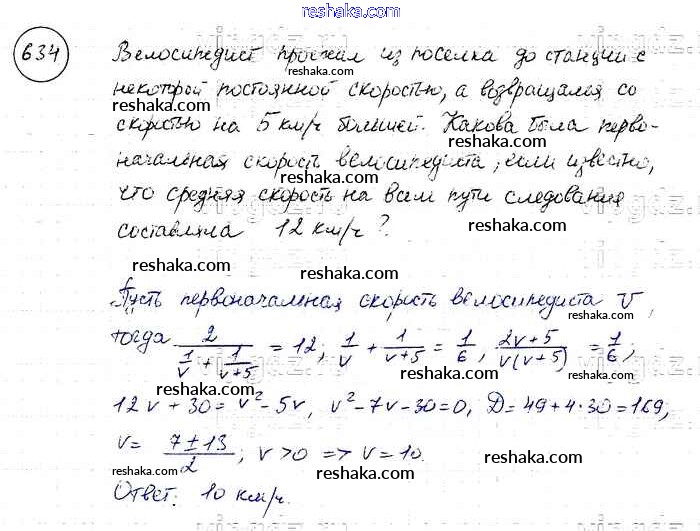 reshaka.com
634
Велосипедист проехал из поселка до станции с
некоторой постоянной скоростью, а возвращался со
скоростью на 5 км/ч большей. Какова была перво-
reshaka.com
reshaka.com
начальная скорость велосипедиста, если известно,
reshaka.com
что средняя скорость на всем пути следования
reshaka.com
составляла 12 км/ч?
reshaka.com
reshaka.com
Пусть первоначальная скорость велосипедиста v,
reshaka.com
тогда 2/(1/v + 1/(v+5)) = 12; 1/v + 1/(v+5) = 1/6, (2v+5)/(v(v+5)) = 1/6;
reshaka.com
reshaka.com
12v + 30 = v² - 5v, v² - 7v - 30 = 0, D = 49 + 4·30 = 169,
v = (7 ± 13)/2; v > 0 => v = 10.
reshaka.com
reshaka.com
reshaka.com
Ответ: 10 км/ч.